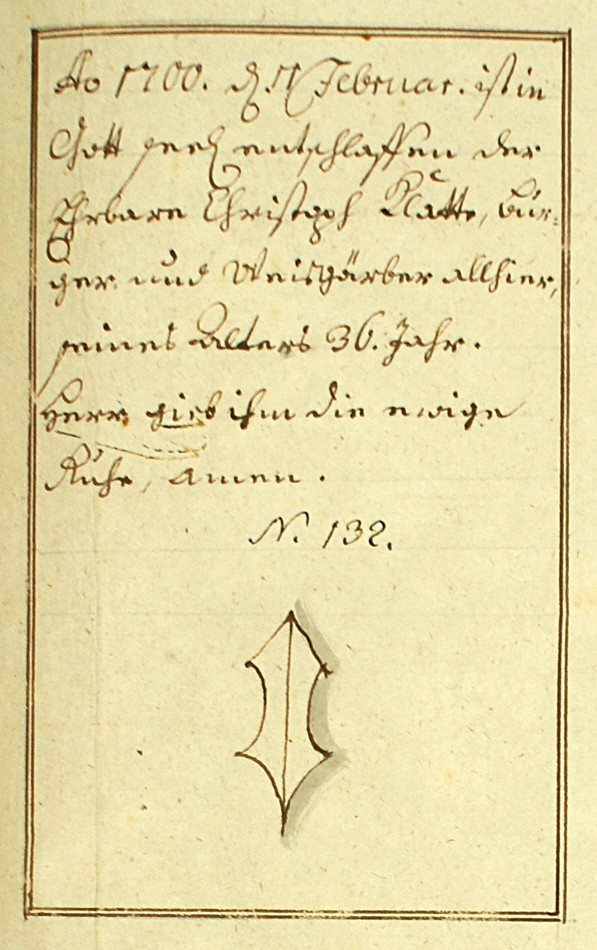 Ao 1700. d. 11 Februar. ist in
Gott seel. entschlaffen der
Ehrbare Christoph Klatte, bür-
ger und Weisgärber allhier,
seines Alters 36. Jahr.
Herr gieb ihm die ewige
Ruhe, Amen.
N. 132.